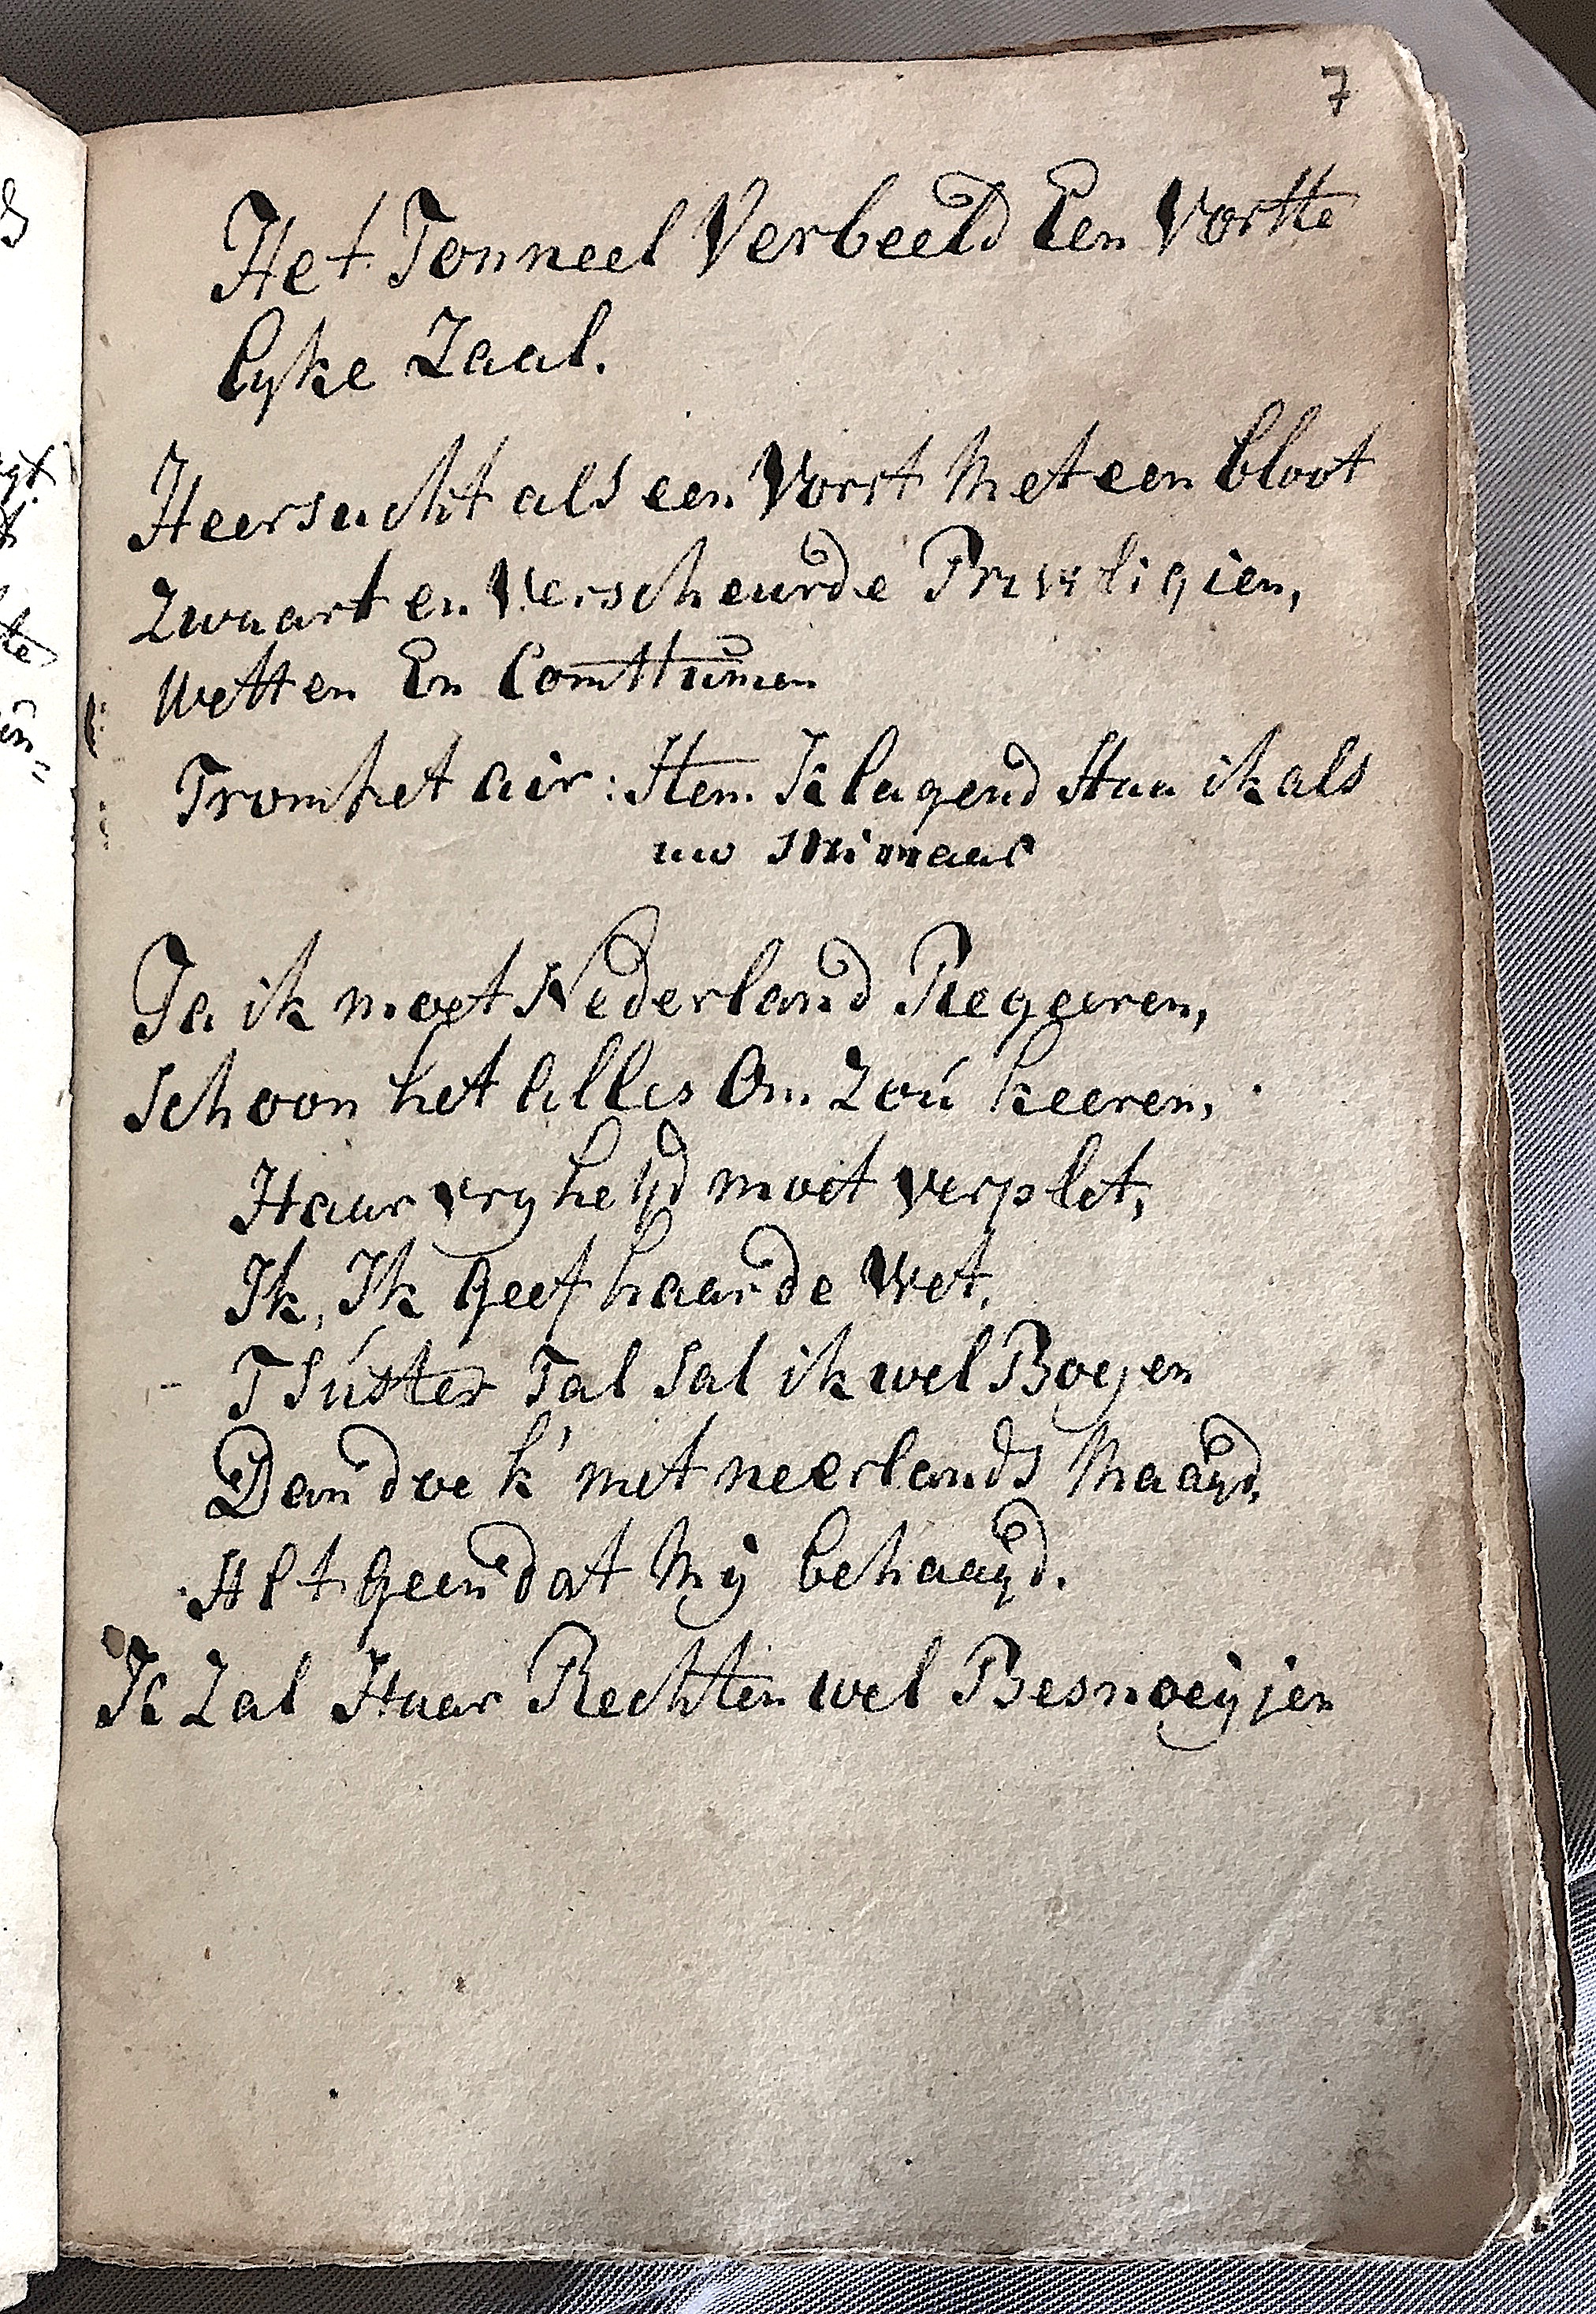 7
Het Tonneel Verbeeld Een Vorste
lyke Zaal.
Heersucht als een Vorst Met een bloot
Zwaart en Verscheurde Priviligien,
Wetten En Costtumen
Tromhet air: Stem Klagend Staa ik als
uw
Ja ik moet Nederland Regeeren,
Schoon het alles Om Zoú keeren,
Haar vryheijd moet verplet,
Ik, Ik geef haar de Wet.
T Súster Tal Sal ik wel Boeyen
Dan doe k' met neerlands Maagd,
Al t geen dat Mij behaagd.
Ik Zal Haar Rechten wel Besnoeijen